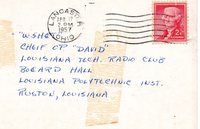 LANCASTER
APR 17
1957
OHIO
2¢
"W5HGT"
CHIEF OP "DAVID"
LOUISIANA TECH. RADIO CLUB
BOGARD HALL
LOUISIANA POLYTECHNIC INST.
RUSTON, LOUISIANA